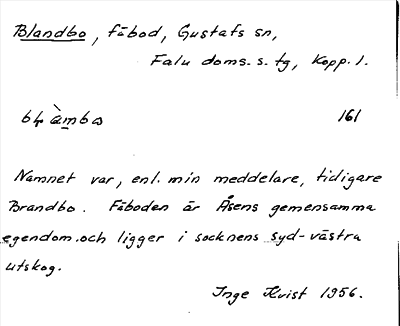 Blandbo, fäbod, Gustafs sn,
Falu doms. s. tg, Kopp. l.
161
Namnet var, enl. min meddelare, tidigare
Brandbo. Fäboden är Åsens gemensamma
egendom och ligger i socknens syd-västra
utskog.
Inge Kvist 1956.